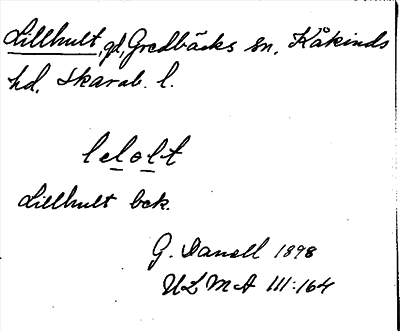 Lillhult, gd, Gredbäcks sn, Kåkinds
hd, Skarab. l.
lelolt
Lillhult bck.
G. Danell 1898
ULMA 111:164